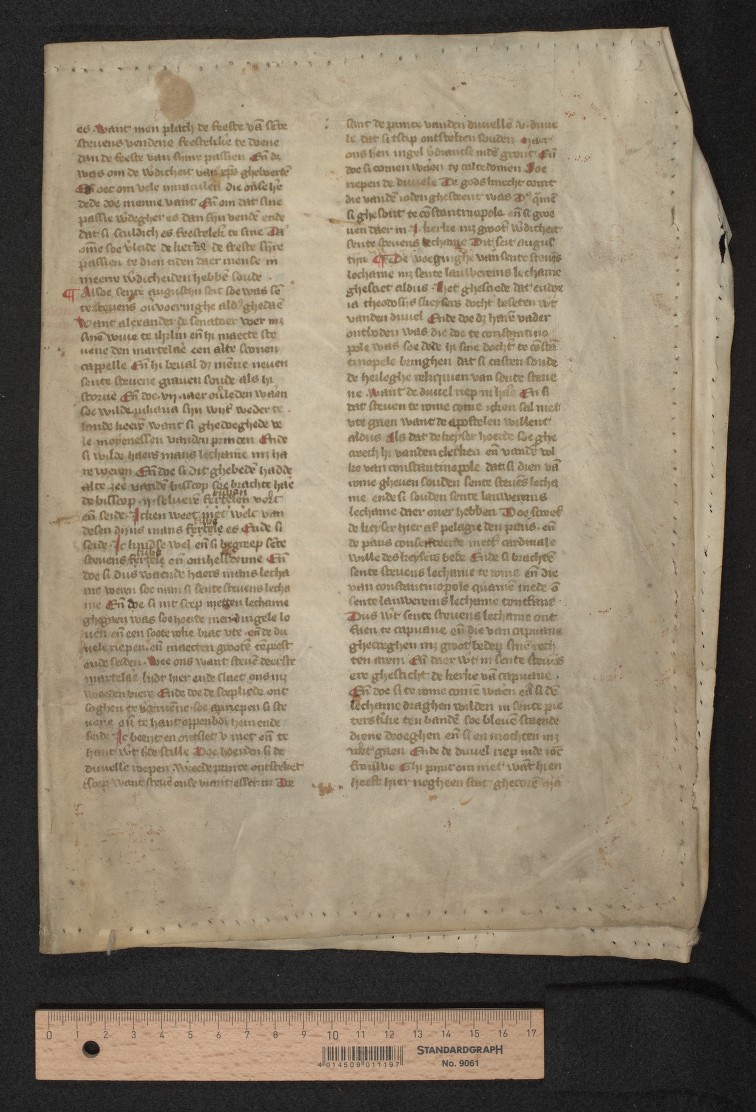 es want men plach de feeste vā sēte
stevens vendene feestelike te doene
dan de feeste van sinre passien En̄ dz
was om de w̄dicheit van xp̄s gheboerte
En̄ oec om vele miraculen die onse he
dede doe menne vant En̄ om dat sine
passie w̄degher es dan sijn vende ende
dat si sculdich es feestelec te sine Da
om̄e soe v̄leide de kerke de feeste sijre
passien te dien tiden daer mense in
meerre w̄dicheiden hebbē soude
¶ Alsoe sente augustijn seit soe was sē
te stevens
Want alexander de senatoer voer mz
sinē wive te ihrlm en̄ hi maecte ste
vene den martelaē een alte scone
cappelle En̄ hi beval dz mēne neven
sente stevene graven soude als hi
storve En̄ doe vij iaer oūleden waēn
soe wilde juliana sijn wijf weder te
lande keerē want si ghedoeghede ve
le moyenessen vanden princen Ende
si wilde haers mans lechame mz ha
re vueren En̄ doe si dit ghebedē hadde
alte zee vandē bisscop soe brachte hae
de bisscop ij selverē vort
en̄ seide Icken weet niet welc van
desen dijns mans es Ende si
seide Ic kendse wel en̄ si begreep sēte
stevens en̄ omhelsdenne En̄
doe si dus waende haers mans lecha
me
me En̄ doe si int scep metten lechame
ghegaen was soe hoerde men yngele lo
ven en̄ een soete roke brac vte en̄ de du
vele riepen en̄ maecten groote tēpeest
ende seiden Wee ons want stevē deerste
martelaē lijdt hier ende slaet ons mz
woedenviere Ende doe de scepliede ont
saghen te v̄dervene soe aenriepen si ste
vene en̄ te hant oppenbdē hem ende
seide Ic bem en ontsiet v niet en̄ te
hant w̄t de zee stille Doe hoerden si de
duvelle roepen Wrede prince ontsteket
tscep want stevē onse viant esser in De
sant de prince vanden duvellē v duve
le dat si tscep ontsteken souden maer
ons hen ingel v̄drancse indē gront En̄
doe si comen waēn te calcedonien Soe
riepen de duvele De gods knecht comt
die vandē ioden ghesteent was Dz quamē
si ghesont te cōstantinopole en̄ si groe
uen daer in .i. kerke mz groot̄ w̄dicheit
sente stevens lechame Dit seit augus
tijn ¶ De voeginghe van sente stevēs
lechame mz sente lauwereins lechame
ghesciet aldus Het ghesciede dat eudox
ia theodosis des keysers docht̄ beseten w̄t
vanden duvel Ende doe dz harē vader
ontboden was die doe te constantino
pole was soe dede hi sine docht̄ te cōstā
tinopele bringhen dat si tasten soude
de heileghe reliquien van sente steve
ne Want de duvel riep in hare En̄ si
dat steven te rome come icken sal niet
vte gaen want de apostelen willent
aldus Als dat de keyser hoerde soe ghe
creech hi vanden clerken en̄ vandē vol
ke van constantinopole dat si dien vā
rome gheven souden sente stevēs lecha
me ende si souden sente lauwereins
lechame daer over hebben Doe screef
de keyser hier af pelagie den paus en̄
de paus consenteerde mett̄ cardinale
wille des keysers bede Ende si brachtē
sente stevens lechame te rome en̄ die
van constantinopole quamē mede ō
sente lauwereins lechame tontfane
Dus w̄t sente stevens lechame ont
faen te capuane en̄ die van capuane
ghecreghen mz groot̄ beden sine rech
ten arem En̄ daer w̄t in sente stevēs
ere ghesticht de kerke vā capuane
En̄ doe si te rome comē waēn en̄ si dē
lechame draghen wilden in sente pie
ters kerke ten bandē soe bleuē staende
diene droeghen en̄ si en mochten niz
vort gaen Ende de duvel riep inde ioc
frouwe Ghi pijnt om niet want hi en
heeft hier negheen stat ghecorē ma
STANDARDGRAPH
No. 9061
4 014509 011197
0 1 2 3 4 5 6 7 8 9 10 11 12 13 14 15 16 17